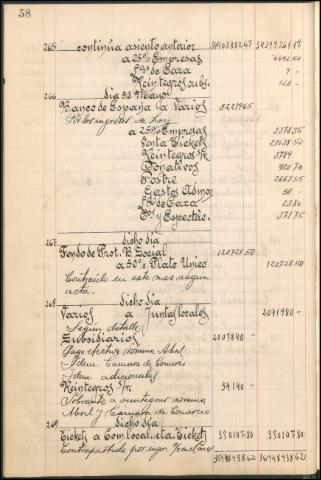 58
265 continúa asiento anterior 34403882 47 34394261 47
a 25% Empresas
Las de Caza 4 -
Reintegros subs.
266
Banco de España a Varios 3223965
Por los ingresos de hoy
a 25% Empresas 337835
Venta Tickets 2102850
Reintegros s/r 3789
Donativos 92070
Postre 266755
Gastos Admo. 50 -
Las de Caza
Tos y Espectác. 37175
267 dicho día
Fondo de Prot. B. Social 12072850
a 50% Plato Unico 12072850
Contraído en este mes segun
acta.
268 dicho día
Varios a Juntas locales 2041980 -
Segun detalle
Subsidiarios 2007840 -
Pago efectivo nomina Abril
Idem. Camara de Comercio
Idem adicionales
Reintegros s/r 34140 -
Sobrante a reintegrar nomina
Abril y Camara de Comercio
269 dicho día
Tickets a Com. local. cta. Tickets 35010780 35010780
Contrapartida por ingr.
3694893862 3694893862